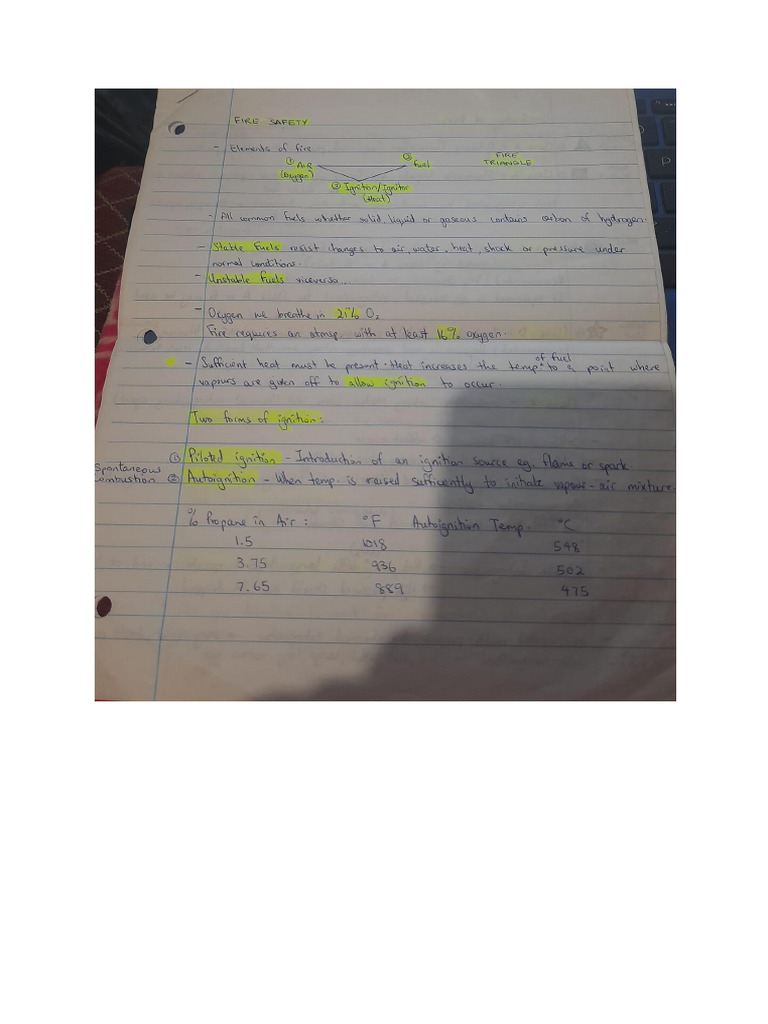 FIRE SAFETY
- Elements of fire
① AIR ② Fuel FIRE
(Oxygen) TRIANGLE
③ Ignition/Ignitor
(Heat)
- All common fuels whether solid, liquid or gaseous contains carbon of hydrogen.
- Stable Fuels resist changes to air, water, heat, shock or pressure under
normal conditions.
- Unstable Fuels viceversa...
- Oxygen we breathe in 21% O₂
Fire requires an atmsp. with at least 16% oxygen.
- Sufficient heat must be present. Heat increases the temp. of fuel to a point where
vapours are given off to allow ignition to occur.
Two forms of ignition:
① Piloted ignition - Introduction of an ignition source eg. flame or spark
Spontaneous
Combustion ② Autoignition - When temp. is raised sufficently to initiate vapour - air mixture.
% Propane in Air: °F Autoignition Temp. °C
1.5 1018 548
3.75 936 502
7.65 889 475